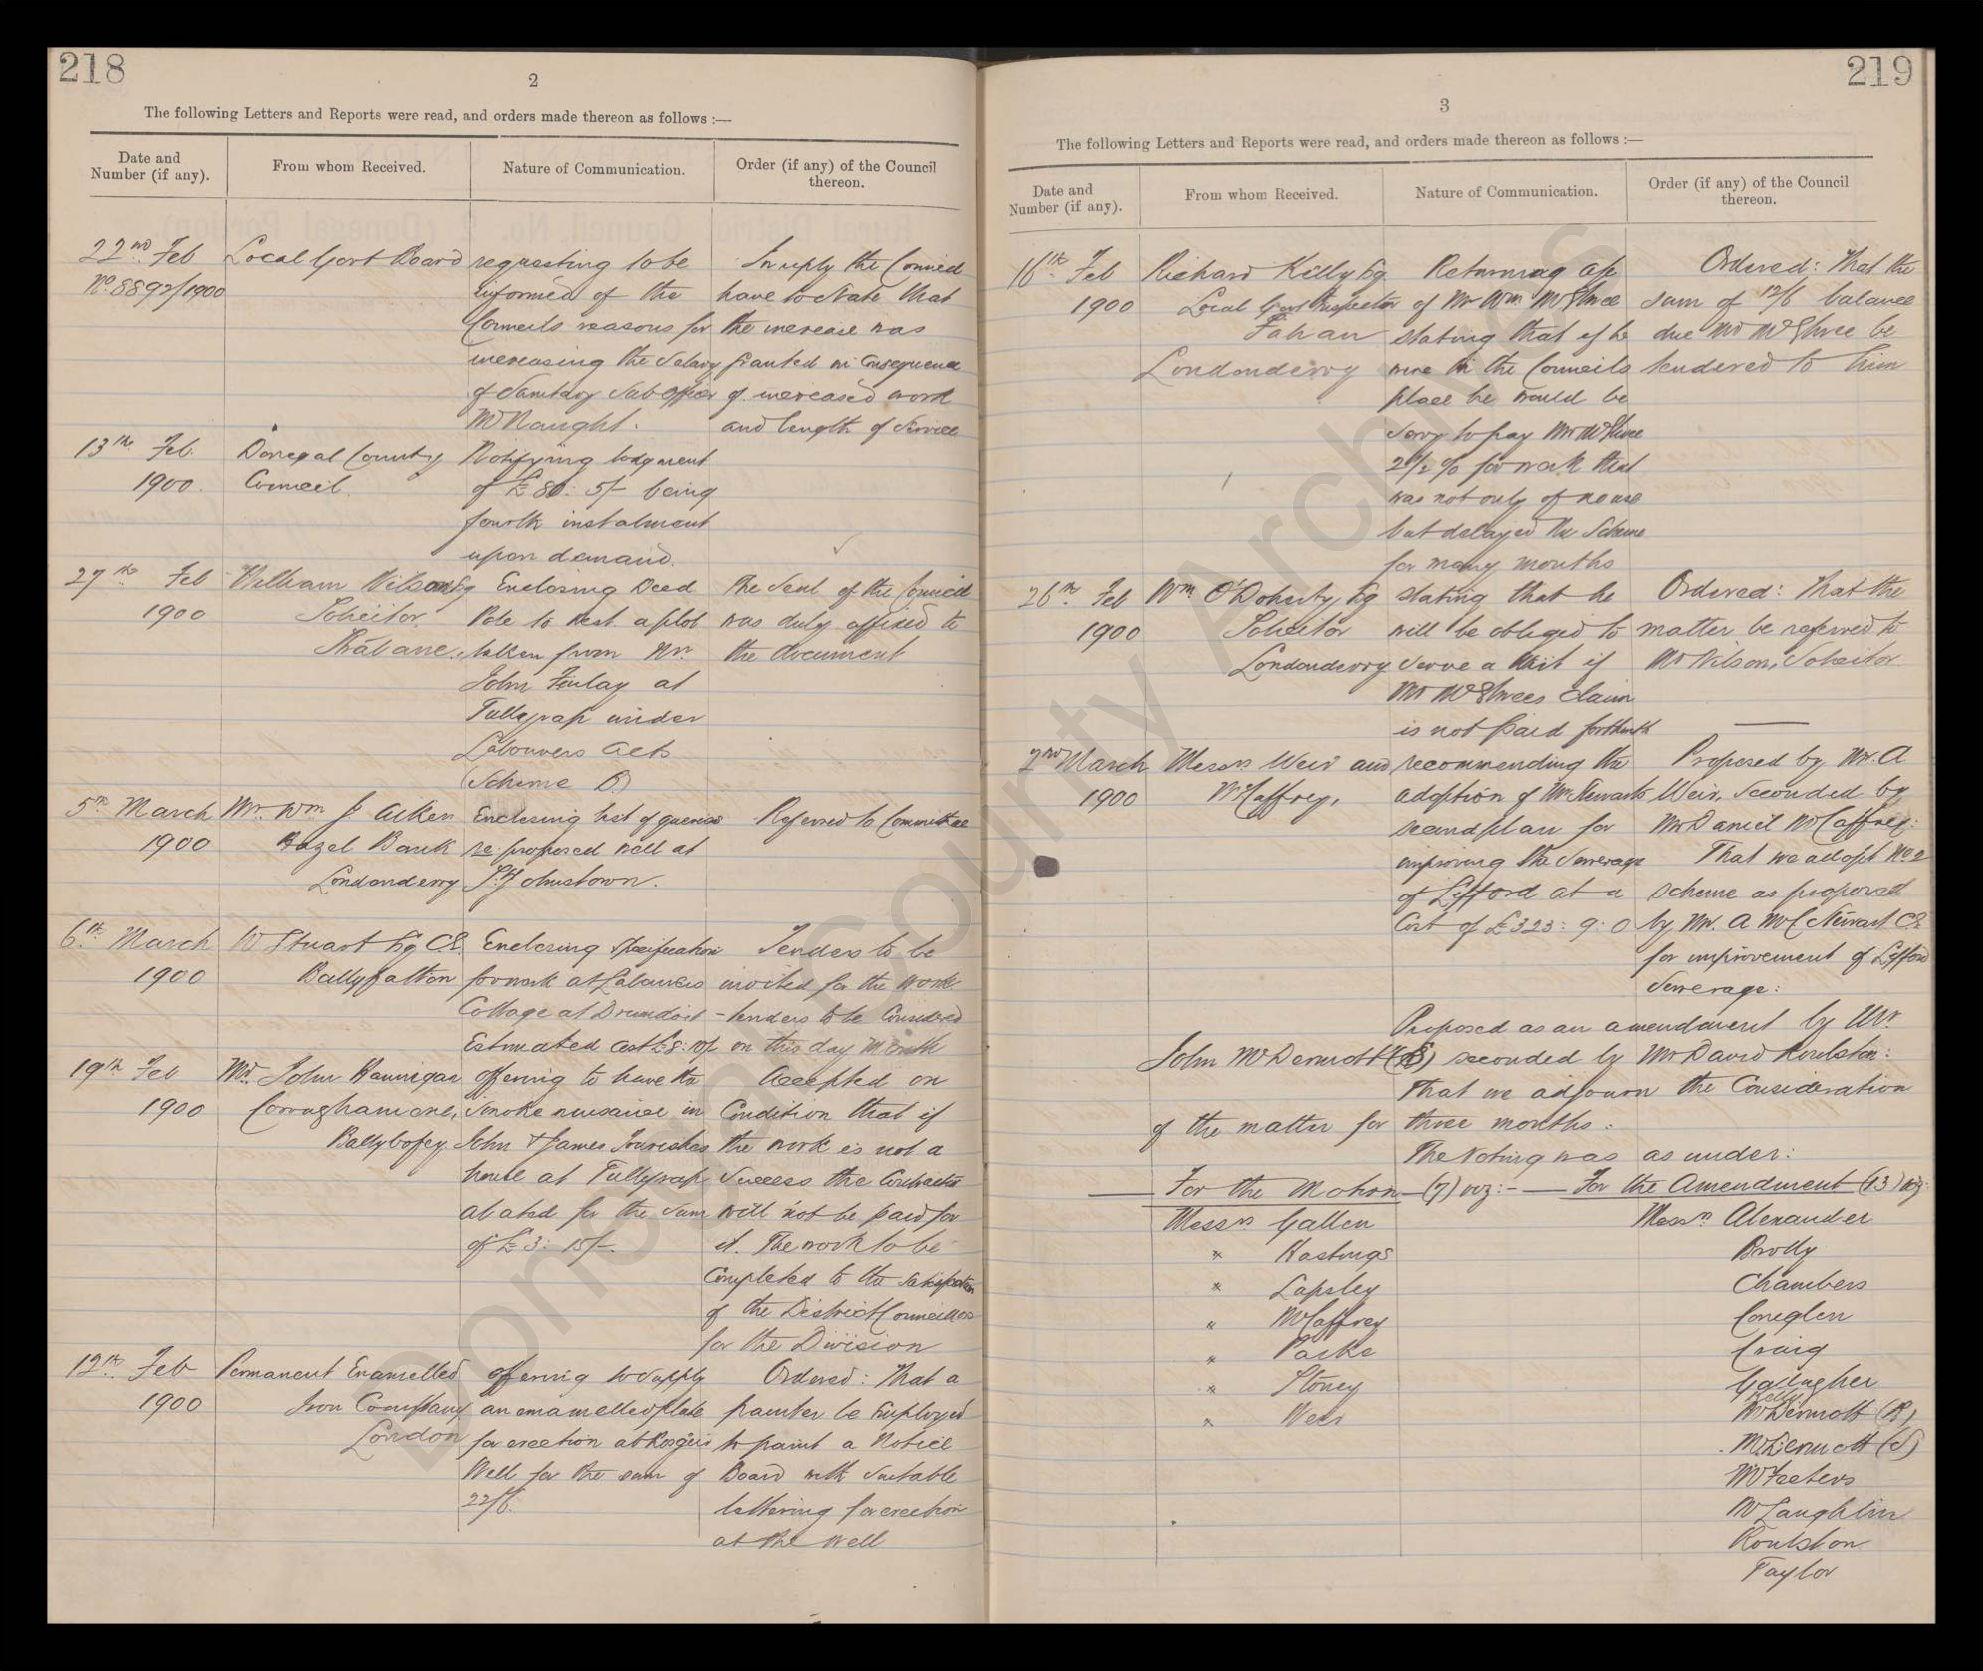 218
2
The following Letters and Reports were read, and orders made thereon as follows :—
Date and
Number (if any).
From whom Received.
Nature of Communication.
Order (if any) of the Council
thereon.
22nd Feb
No 8892/1900
Local Govt Board
requesting to be
informed of the
Councils reasons for
increasing the Salary
of Sanitary Sub Officer
McNaught.
In reply the Council
have to state that
the increase was
granted in consequence
of increased work
and length of Service
13th Feb.
1900.
Donegal County
Council.
Notifying lodgment
of £80: 5/- being
fourth instalment
upon demand.
27th Feb
1900
William Wilson Esq
Solicitor
Strabane.
Enclosing Deed
Pole to vest a plot
taken from Mr.
John Finlay at
Tullyrap under
Labourers Acts
(Scheme B)
The Seal of the Council
was duly affixed to
the document
5th March
1900
Mr. Wm J. Aiken
Hazel Bank
Londonderry
Enclosing list of queries
re: proposed well at
St. Johnstown.
Referred to Committee
6th March
1900
W Stuart Esq CE.
Ballyfatton
Enclosing Specification
for work at Labourers
Cottage at Drumdoit
Estimated cost £8: 10/-
Tenders to be
invited for the work
- tenders to be Considered
on this day Month
19th Feb
1900
Mr. John Hannigan
Corraghamone,
Ballybofey
offering to have the
smoke nuisance in
John & James
house at Tullyrap
abated for the sum
of £3: 15/-.
Accepted on
Condition that if
the work is not a
Success the Contractor
will not be paid for
it. The work to be
Completed to the satisfaction
of the District Councillors
for the Division
12th Feb
1900
Permanent Enamelled
Iron Company
London
offering to supply
an enamelled plate
for erection at
Well for the sum of
22/6.
Ordered: That a
painter be Employed
to paint a Notice
Board with Suitable
lettering for erection
at the Well
219
3
The following Letters and Reports were read, and orders made thereon as follows :—
Date and
Number (if any).
From whom Received.
Nature of Communication.
Order (if any) of the Council
thereon.
16th Feb
1900
Richard Kelly Esq
Local Govt Inspector
Fahan
Londonderry
Returning a/c
of Mr Wm McElwee
stating that if he
were in the Councils
place he would be
sorry to pay Mr McElwee
2½% for work that
was not only of no use
but delayed the Scheme
for many months
Ordered: That the
sum of 12/6 balance
due Mr McElwee be
tendered to him
26th Feb
1900
Wm O'Doherty Esq
Solicitor
Londonderry
stating that he
will be obliged to
serve a Writ if
Mr McElwees Claim
is not paid forthwith
Ordered: That the
matter be referred to
Mr Wilson, Solicitor
2nd March
1900
Messrs Weir and
McCaffrey,
recommending the
adoption of Mr Stewarts
second plan for
improving the Sewerage
of Lifford at a
Cost of £323: 9: 0
Proposed by Mr. A
Weir, Seconded by
Mr Daniel McCaffrey:
That we adopt No 2
scheme as proposed
by Mr. A McC Stewart CE
for improvement of Lifford
Sewerage:
Proposed as an amendment by Mr
John McDermott seconded by Mr David Roulston:
That we adjourn the Consideration
of the matter for three months:
The Voting was as under:
For the Motion (7) viz:- — For the Amendment (13) viz:
Messrs Gallen
" Hastings
" Lapsley
" McCaffrey
" Parke
" Stoney
" Weir
Messrs Alexander
Brolly
Chambers
Coneglen
Craig
Gallagher
Kelly
McDermott (R)
McDermott (J)
McFeeters
McLaughlin
Roulston
Taylor
Donegal County Archives